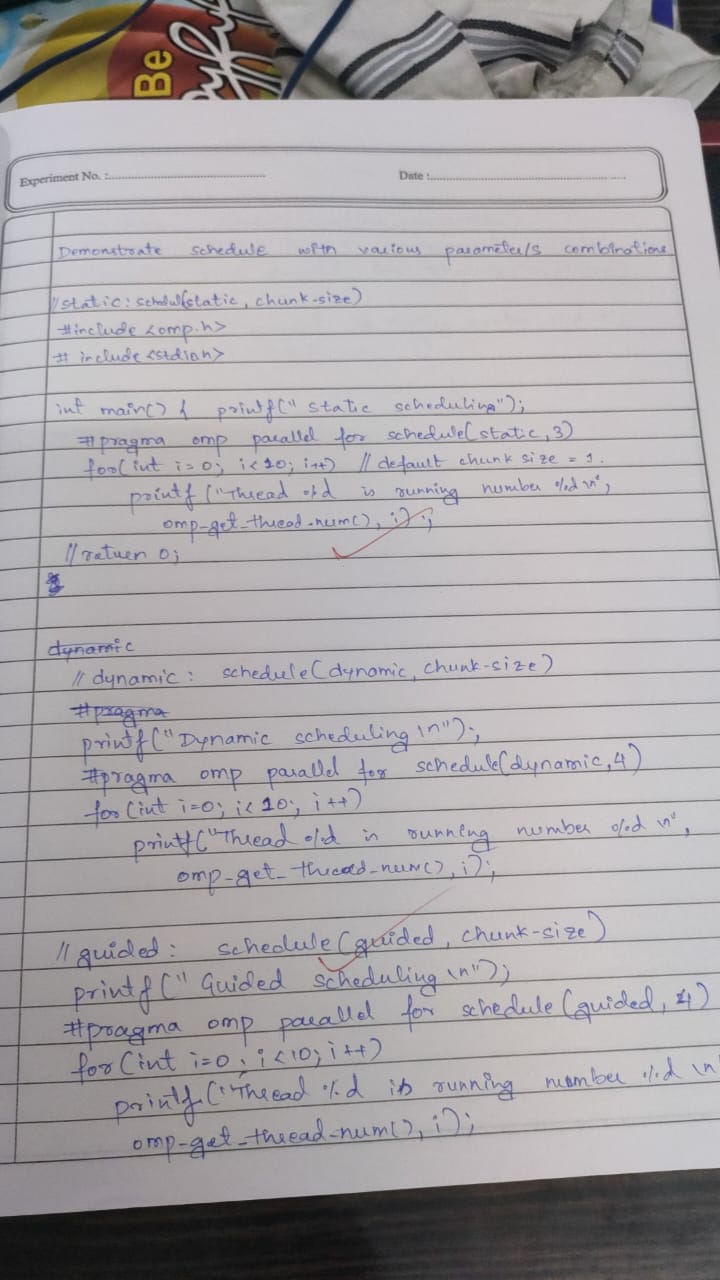 Be
Experiment No. :
Date :
Demonstrate schedule with various parameter/s combinations
// static : schdul(static, chunk-size)
#include <omp.h>
# include <stdio.h>
int main() { printf(" static scheduling");
#pragma omp parallel for schedule(static, 3)
for(int i=0; i<10; i++) // default chunk size = 1.
printf ("Thread %d is running number %d \n",
omp-get-thread-num(), i);
// return 0;
dynamic
// dynamic : schedule(dynamic, chunk-size)
#pragma
printf("Dynamic scheduling \n");
#pragma omp parallel for schedule(dynamic, 4)
for (int i=0; i<10; i++)
printf("Thread %d is running number %d \n",
omp-get-thread-num(), i);
// guided : schedule (guided, chunk-size)
printf (" Guided scheduling \n");
#pragma omp parallel for schedule (guided, 4)
for (int i=0; i<10; i++)
printf ("Thread %d is running number %d \n
omp-get-thread-num(), i);